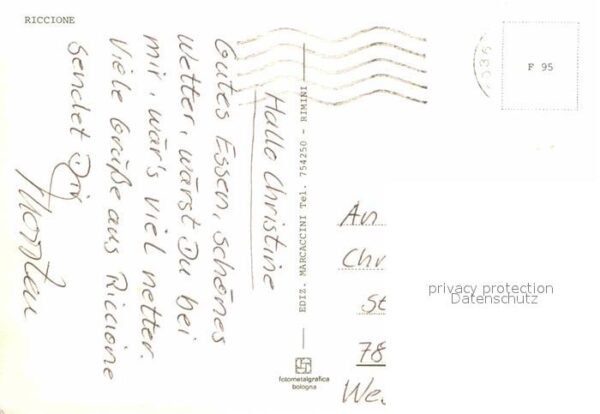 RICCIONE
Hallo Christine
Gutes Essen, schönes
Wetter, wärst Du bei
mir, wär's viel netter.
Viele Grüße aus Riccione
sendet Dir
Thorsten
EDIZ. MARCACCINI Tel. 754250 - RIMINI
fotometalgrafica
bologna
F 95
An
Chr
St
78
We
privacy protection
Datenschutz